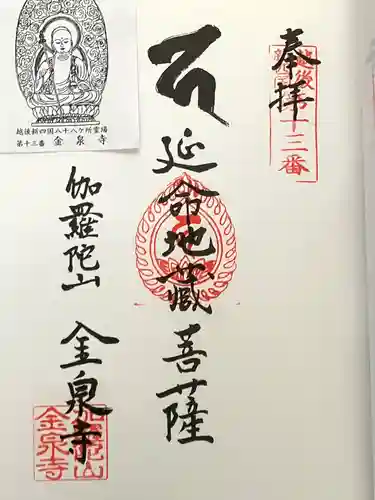 奉拝
十三番
延命地蔵菩薩
伽羅陀山
金泉寺
伽羅陀山
金泉寺
越後新四国八十八ケ所霊場
第十三番 金泉寺